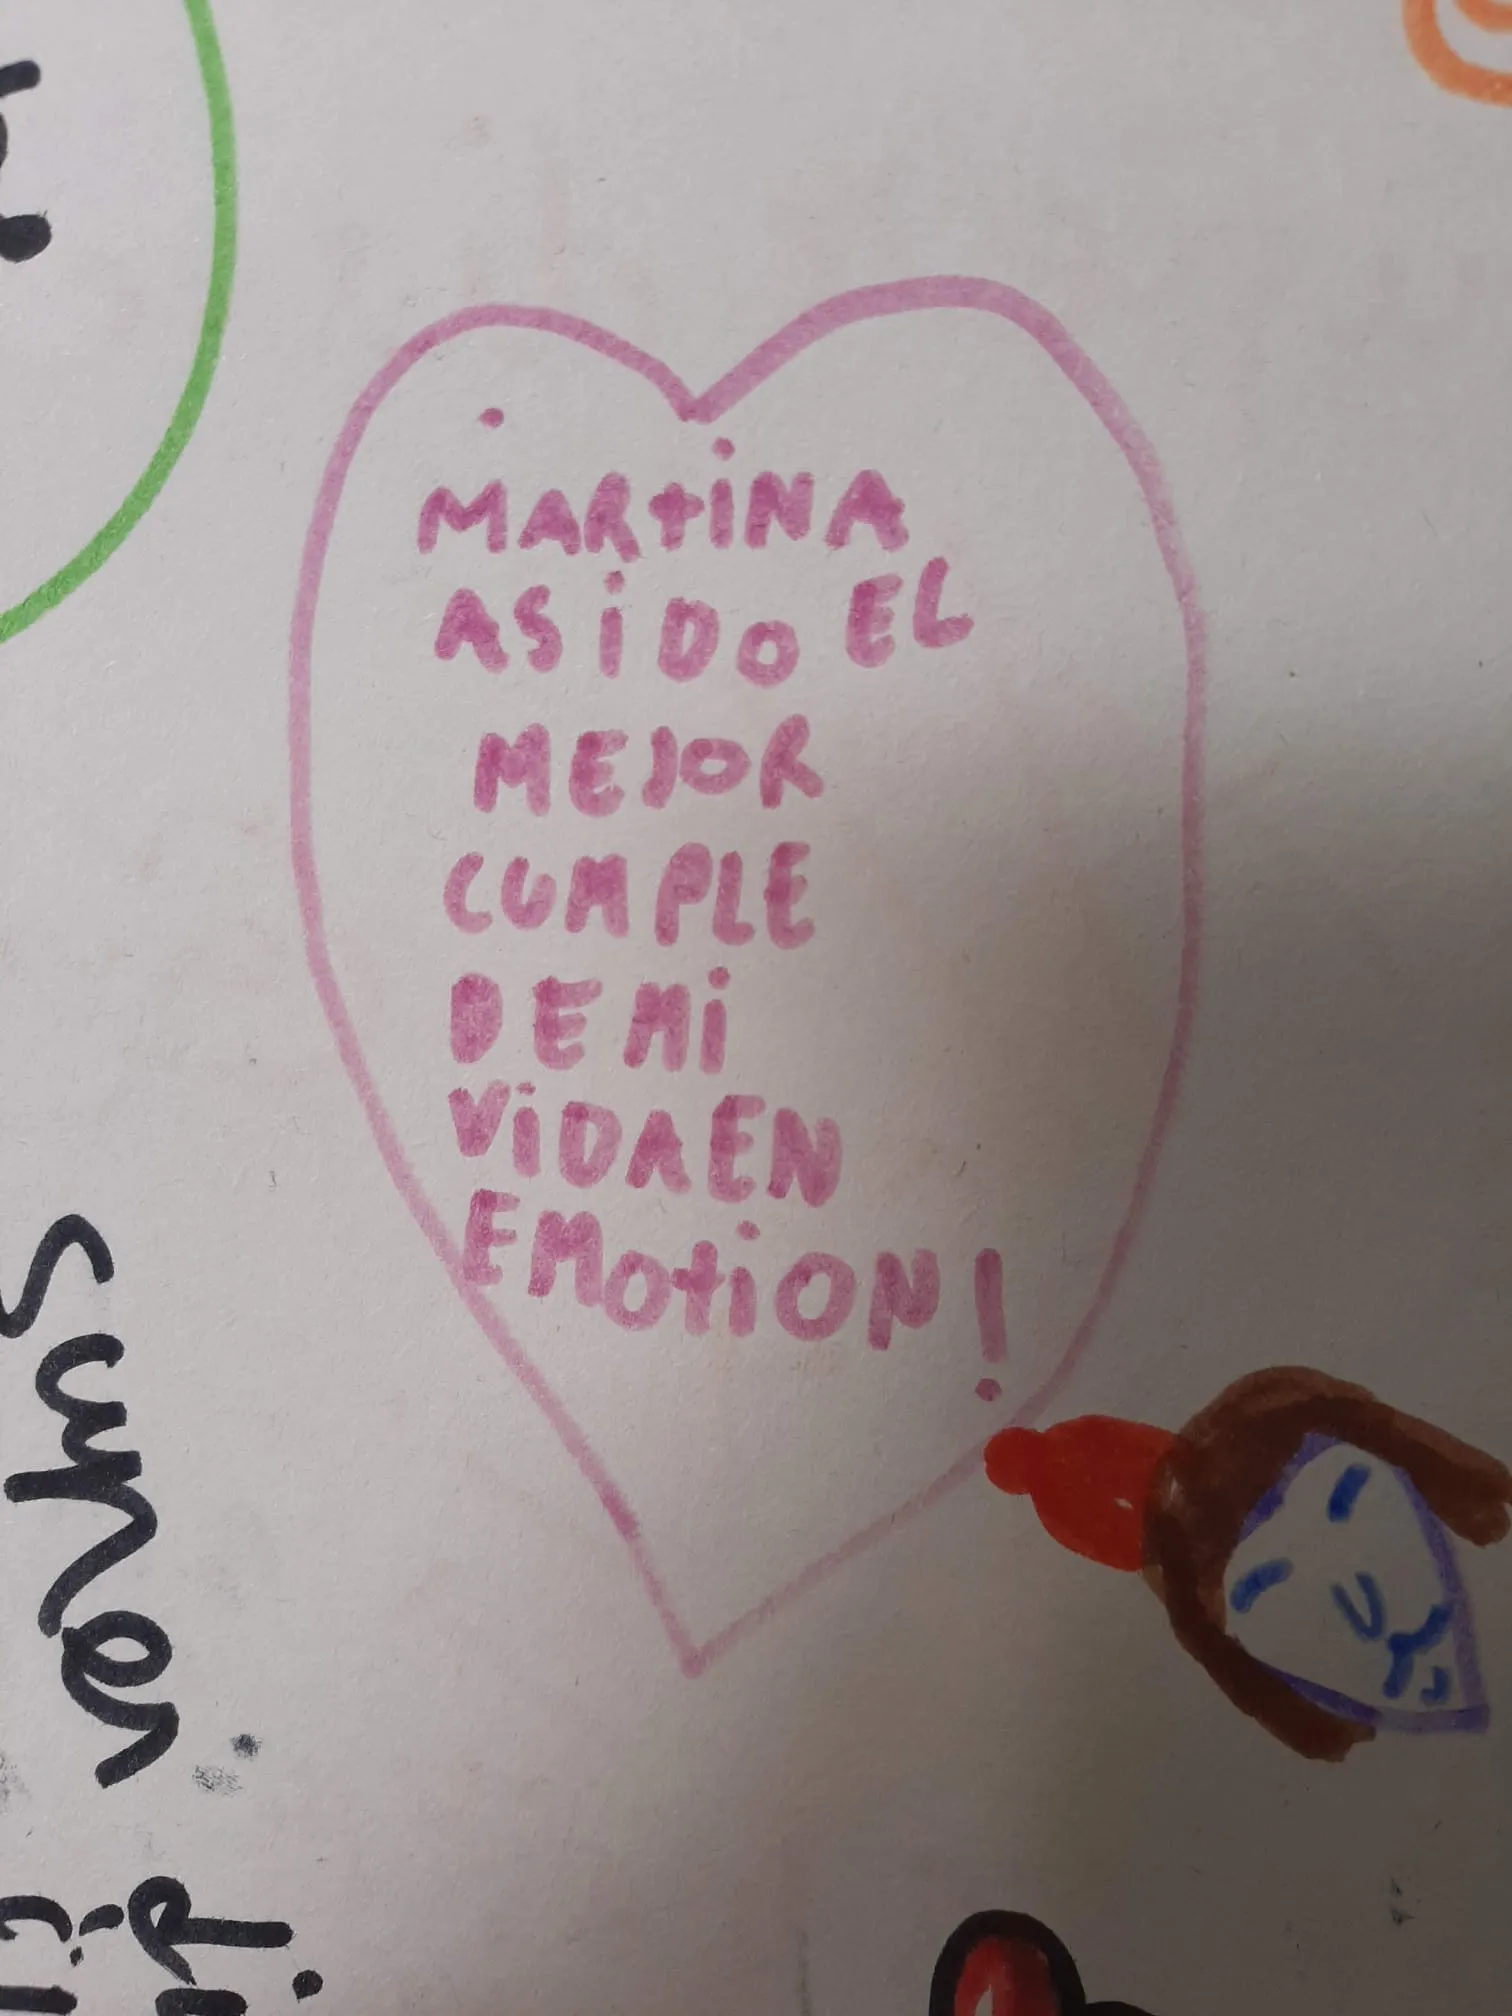 MARTiNA
ASiDO EL
MEJOR
CUMPLE
DE Mi
ViDA EN
EMOTiON!
super